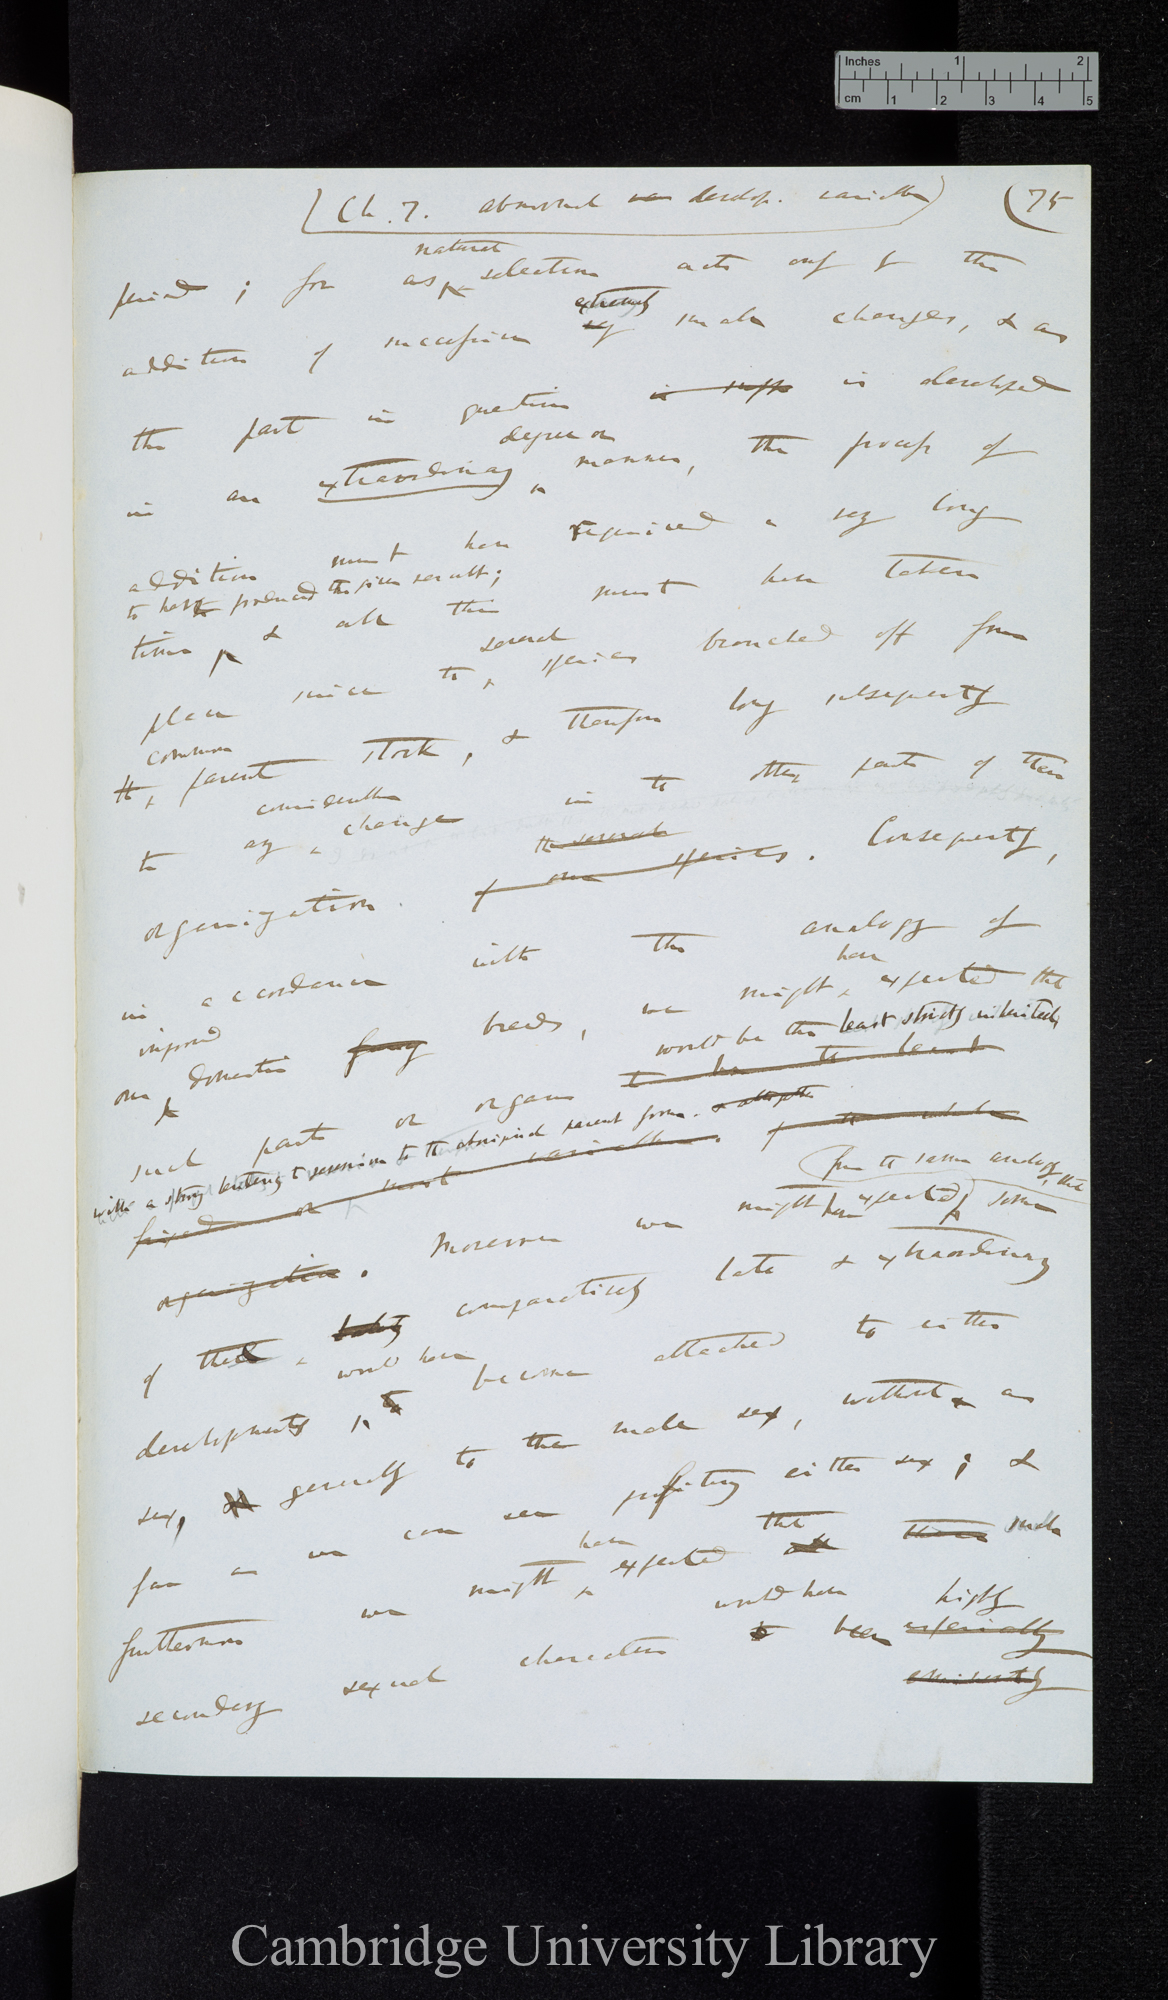 Inches 1 2
cm 1 2 3 4 5
(Ch. 7. abnormal var develop. variable) (75
natural
period; for as selection acts only by the
extremely
addition of successive very small changes, & as
the part in question is supp is developed
degree or
in an extraordinary manner, the process of
addition must have required a very long
to have produced the given result;
time & all this must have taken
several
place since the species branched off from
common
the parent stock, & therefore long subsequently
considerable
to any change in the other parts of their
the several
organization. of our species. Consequently,
in accordance with the analogy of
have
improved we might expected that
our domestic fancy breeds,
would be the least strictly inherited,
such parts or organs to be the least
with a strong tendency to reversion to the aboriginal parent form.
fixed or most variable. of the whole
from the same analogy, that
organization. Moreover we might have expected some
of these lately comparatively late & extraordinary
would have
developments to become attached to either
sex, generally to the male sex, without as
far as we can see profiting either sex; &
have the
furthermore we might expected all these such
would have highly
secondary sexual characters to been especially
eminently
Cambridge University Library